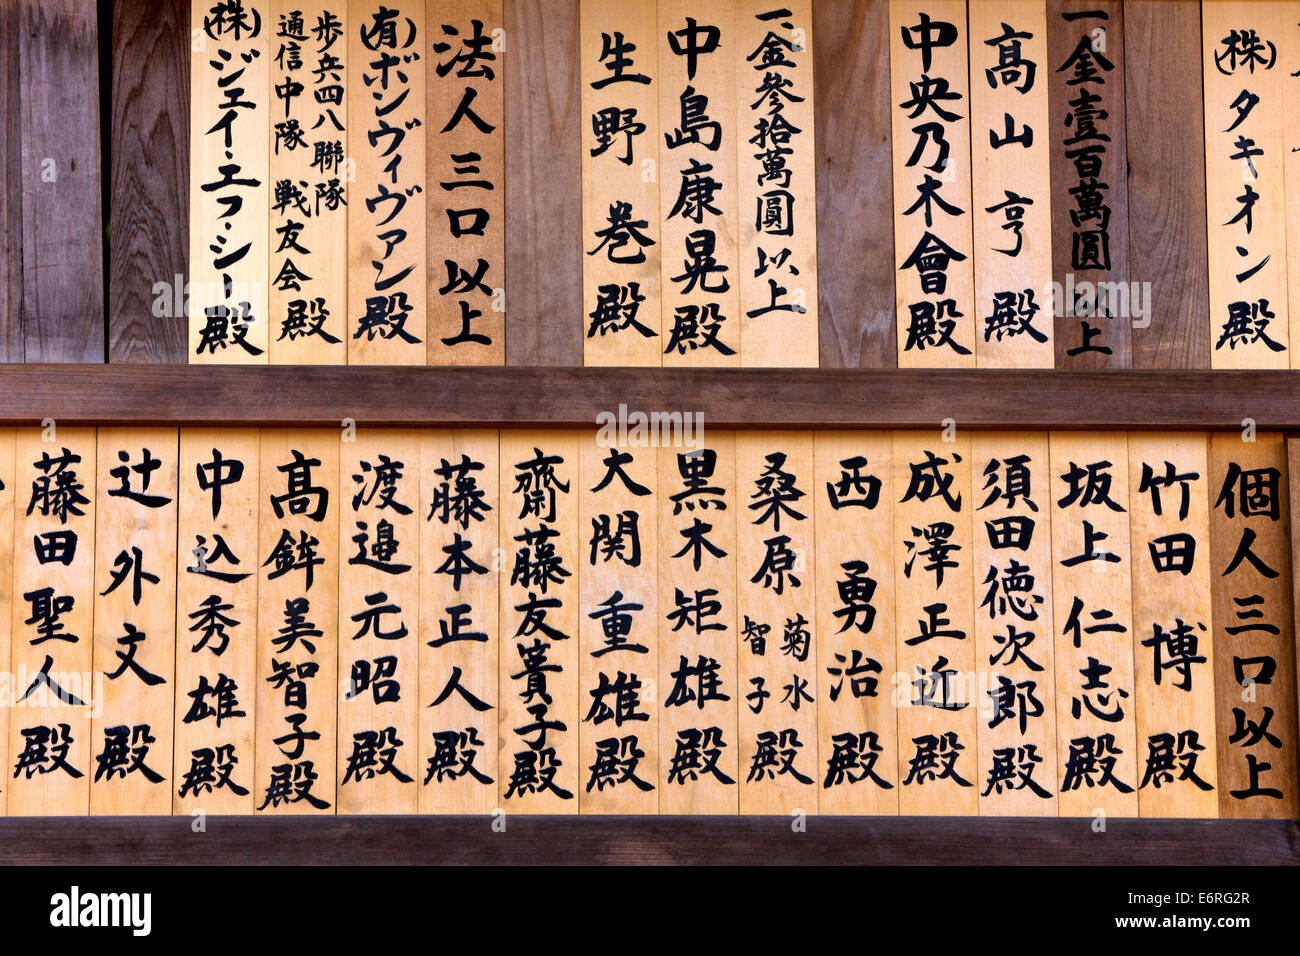 (株)タキオン殿
一金壹百萬圓以上
高山亨殿
中央乃木會殿
一、金參拾萬圓以上
中島康晃殿
生野巻殿
法人三口以上
(有)ボンヴィヴァン殿
歩兵四八聯隊
通信中隊戦友会殿
(株)ジェイ・エフ・シー殿
個人三口以上
竹田博殿
坂上仁志殿
須田徳次郎殿
成澤正近殿
西勇治殿
桑原菊水
智子殿
黒木矩雄殿
大関重雄殿
齋藤友賽子殿
藤本正人殿
渡邉元昭殿
高鉾美智子殿
中込秀雄殿
辻外文殿
藤田聖人殿
alamy
Image ID: E6RG2R
www.alamy.com